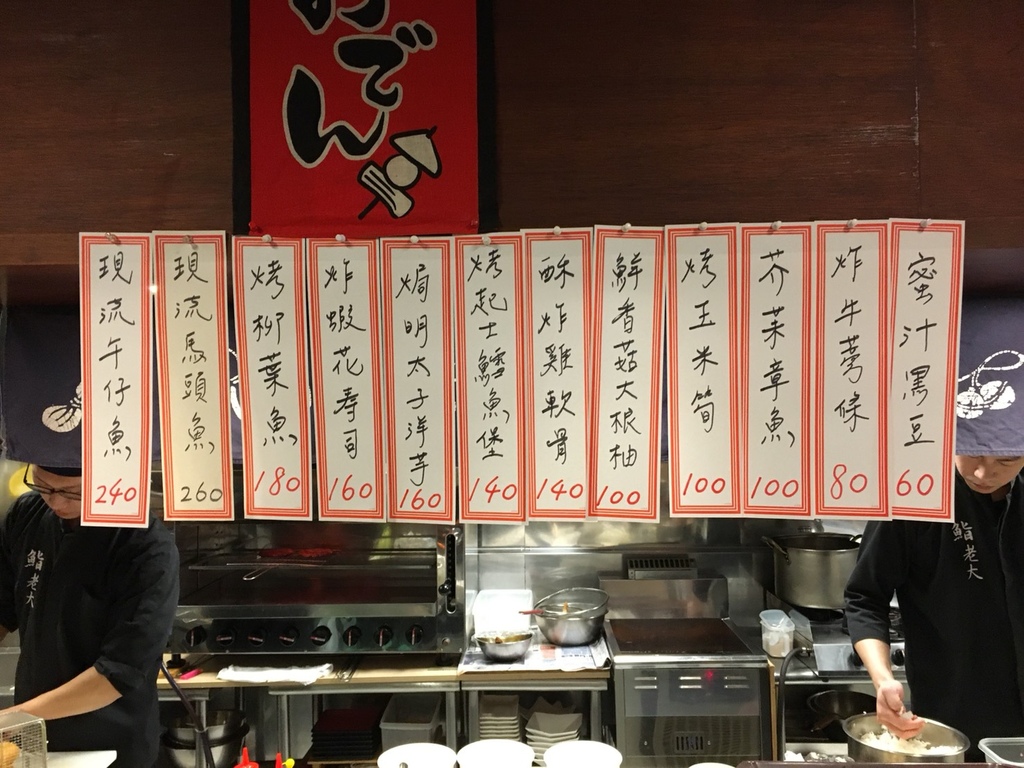 おでん
現流午仔魚
240
現流馬頭魚
260
烤柳葉魚
180
炸蝦花寿司
160
焗明太子洋芋
160
烤起士鱈魚堡
140
酥炸雞軟骨
140
鮮香菇大根柚
100
烤玉米筍
100
芥茉章魚
100
炸牛蒡條
80
蜜汁黑豆
60
鮨老大
鮨老大